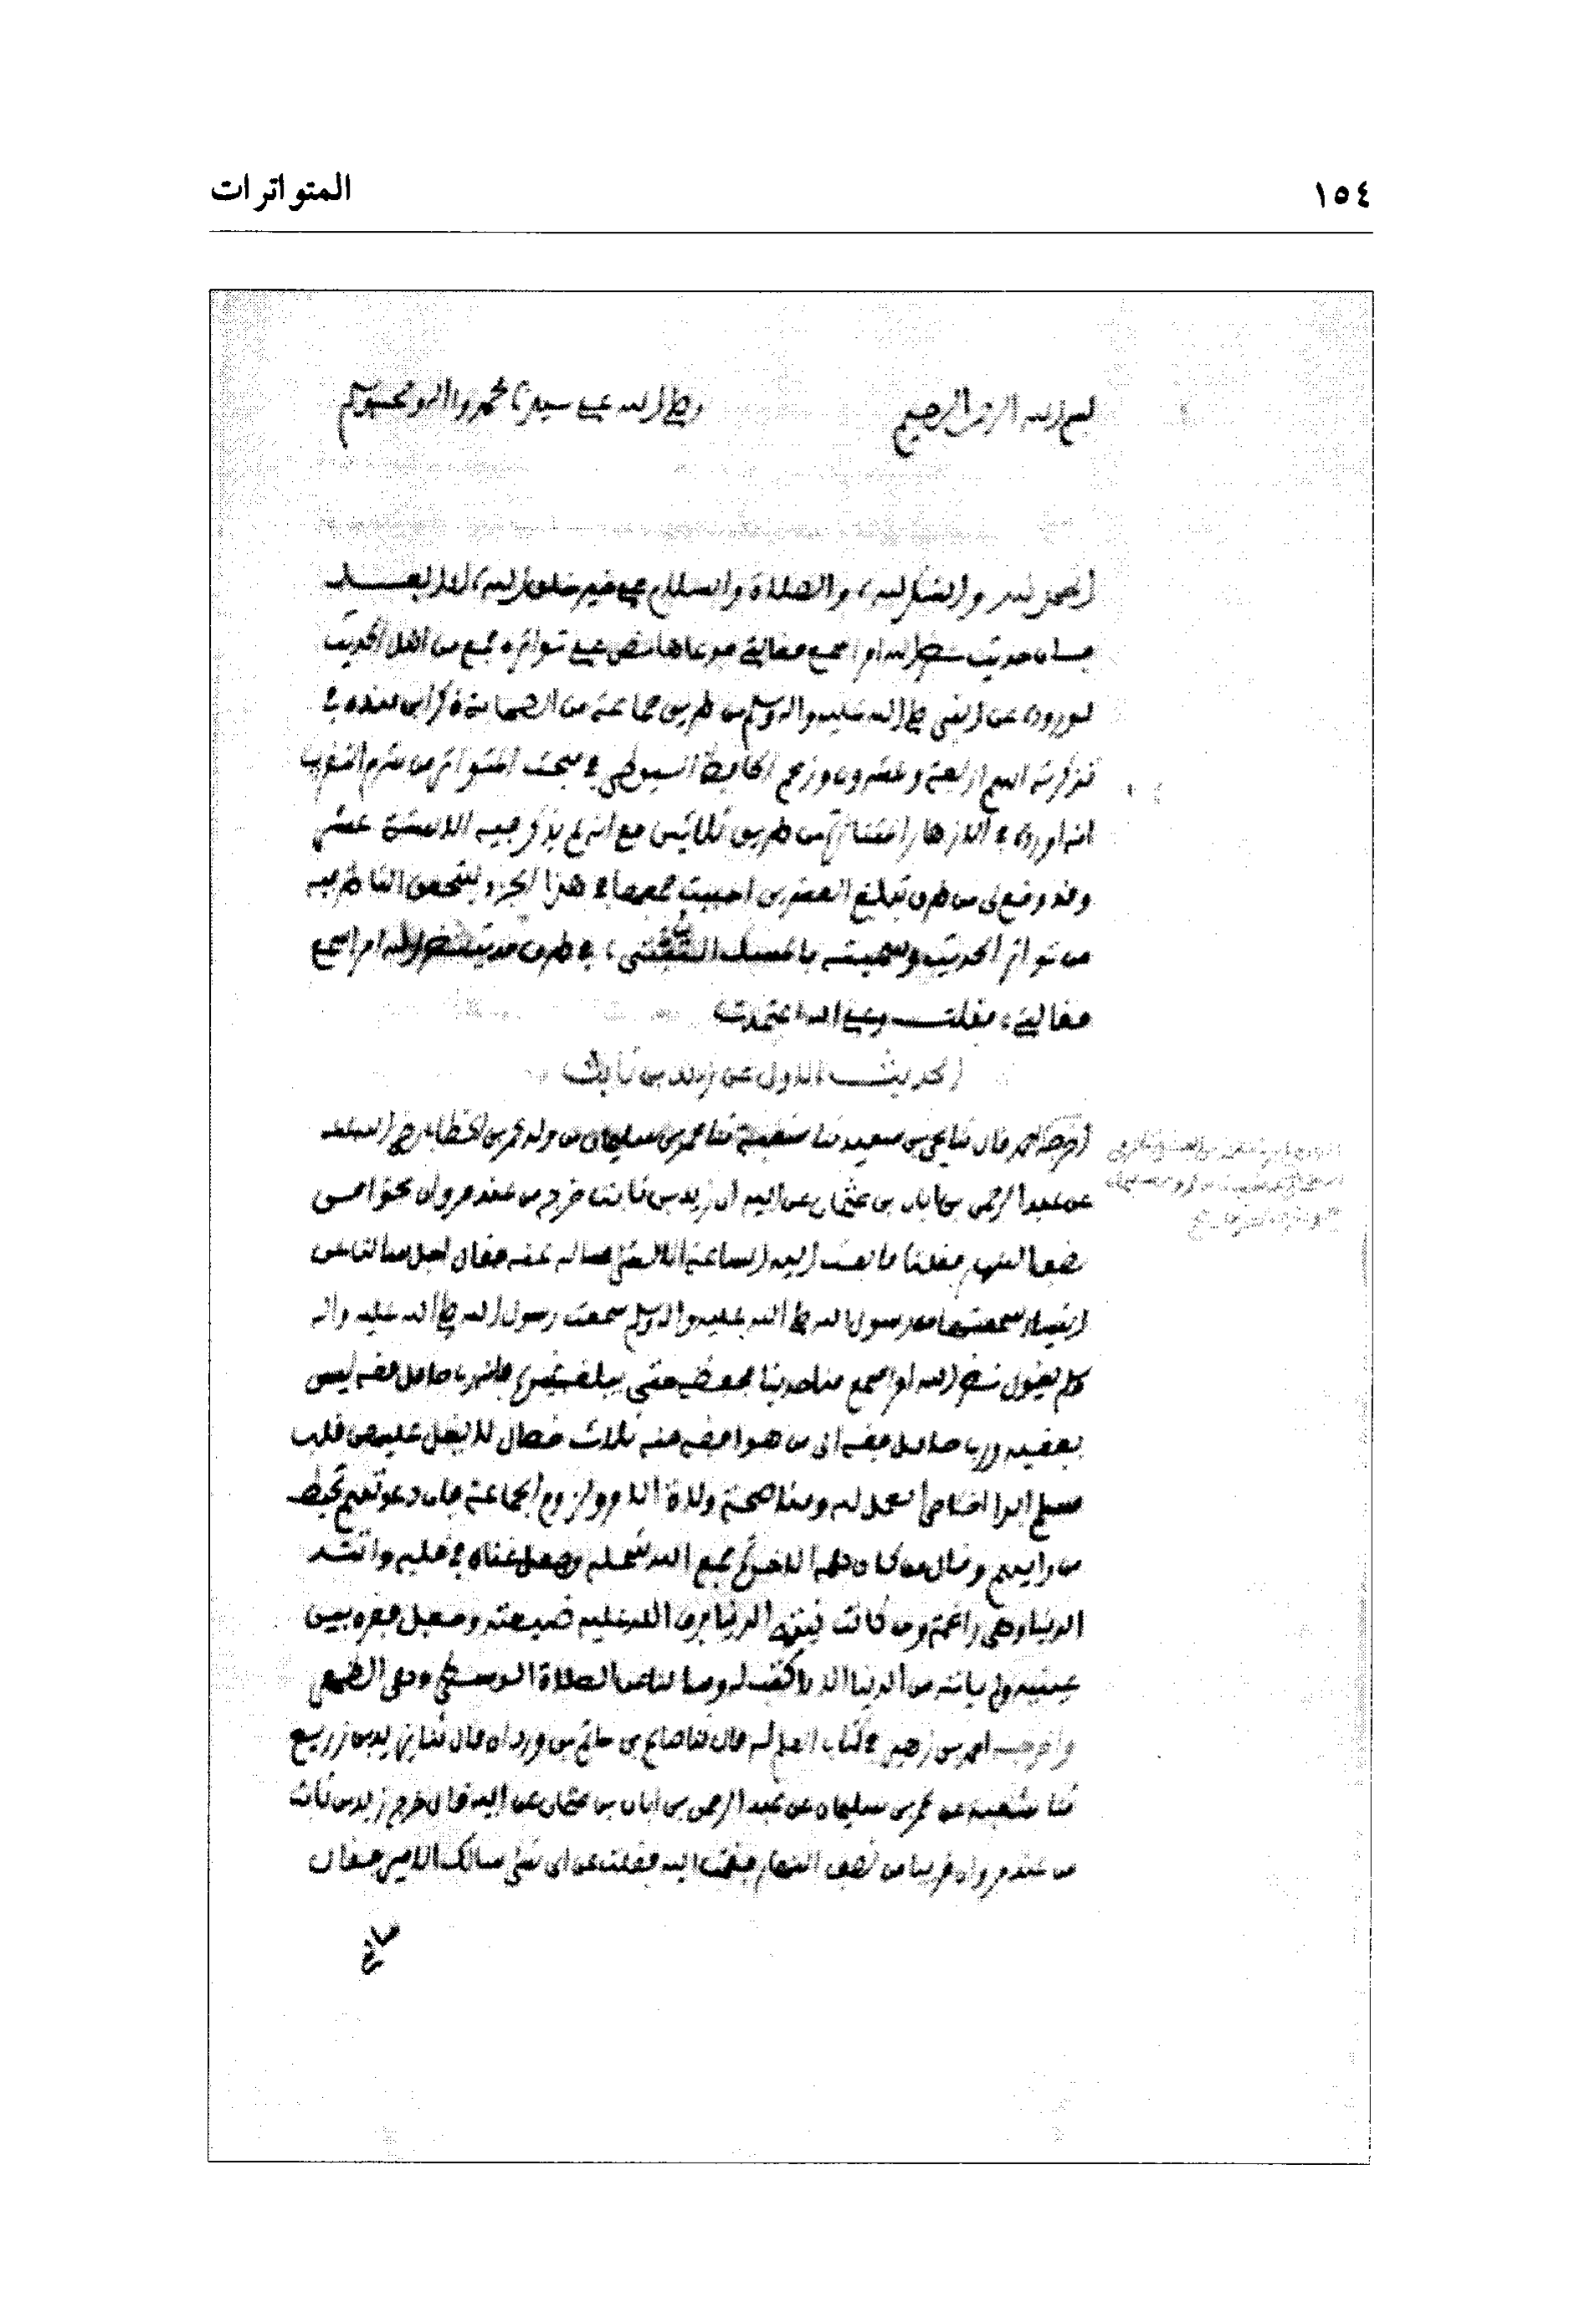 ١٥٤
المتواترات
بسم الله الرحمن الرحيم
وصلى الله على سيدنا محمد وآله وصحبه وسلم
الحمد لله والشكر لله، والصلاة والسلام على خير خلق الله، أما بعد
فإن حديث نضر الله امرأ سمع مقالتي فوعاها نص على تواتره جمع من أهل الحديث
لوروده عن النبي صلى الله عليه وآله وسلم من طريق جماعة من الصحابة ذكر ابن منده في
تذكرته أنهم أربعة وعشرون وزعم الحافظ السيوطي في مبحث المتواتر من شرح التقريب
أنه أورده في الأزهار المتناثرة من طريق ثلاثين مع أنه لم يذكر فيه إلا ستة عشر
وقد وقع لي من طرق تبلغ العشرين أحببت جمعها في هذا الجزء ليتحقق الناظر فيه
من تواتر الحديث وسميته بالمسك التبتي، في طرق حديث نضر الله امرأ سمع
مقالتي، فقلت وعلى الله اعتمدت
الحديث الأول عن زيد بن ثابت
أخرجه أحمد قال ثنا يحيى بن سعيد ثنا شعبة ثنا عمر بن سليمان من ولد عمر بن الخطاب رضي الله عنه
عن عبد الرحمن بن أبان بن عثمان عن أبيه أن زيد بن ثابت خرج من عند مروان نحوا من
نصف النهار فقلنا ما بعث إليه الساعة إلا لشيء سأله عنه فقال أجل سألنا عن
أشياء سمعتها من رسول الله صلى الله عليه وآله وسلم سمعت رسول الله صلى الله عليه وآله
وسلم يقول نضر الله امرأ سمع منا حديثا فحفظه حتى يبلغه غيره فإنه رب حامل فقه ليس
بفقيه ورب حامل فقه إلى من هو أفقه منه ثلاث خصال لا يغل عليهن قلب
مسلم أبدا إخلاص العمل لله ومناصحة ولاة الأمر ولزوم الجماعة فإن دعوتهم تحيط
من ورائهم وقال من كان همه الآخرة جمع الله شمله وجعل غناه في قلبه وأتته
الدنيا وهي راغمة ومن كانت نيته الدنيا فرق الله عليه ضيعته وجعل فقره بين
عينيه ولم يأته من الدنيا إلا ما كتب له وسألنا عن الصلاة الوسطى وهي الظهر
وأخرجه أحمد بن زهير في كتاب العلم له قال ثنا صالح بن حاتم بن وردان قال ثنا يزيد بن زريع
ثنا شعبة عن عمر بن سليمان عن عبد الرحمن بن أبان بن عثمان عن أبيه قال خرج زيد بن ثابت
من عند مروان قريبا من نصف النهار فقمت إليه فقلت عن أي شيء سألك الأمير فقال